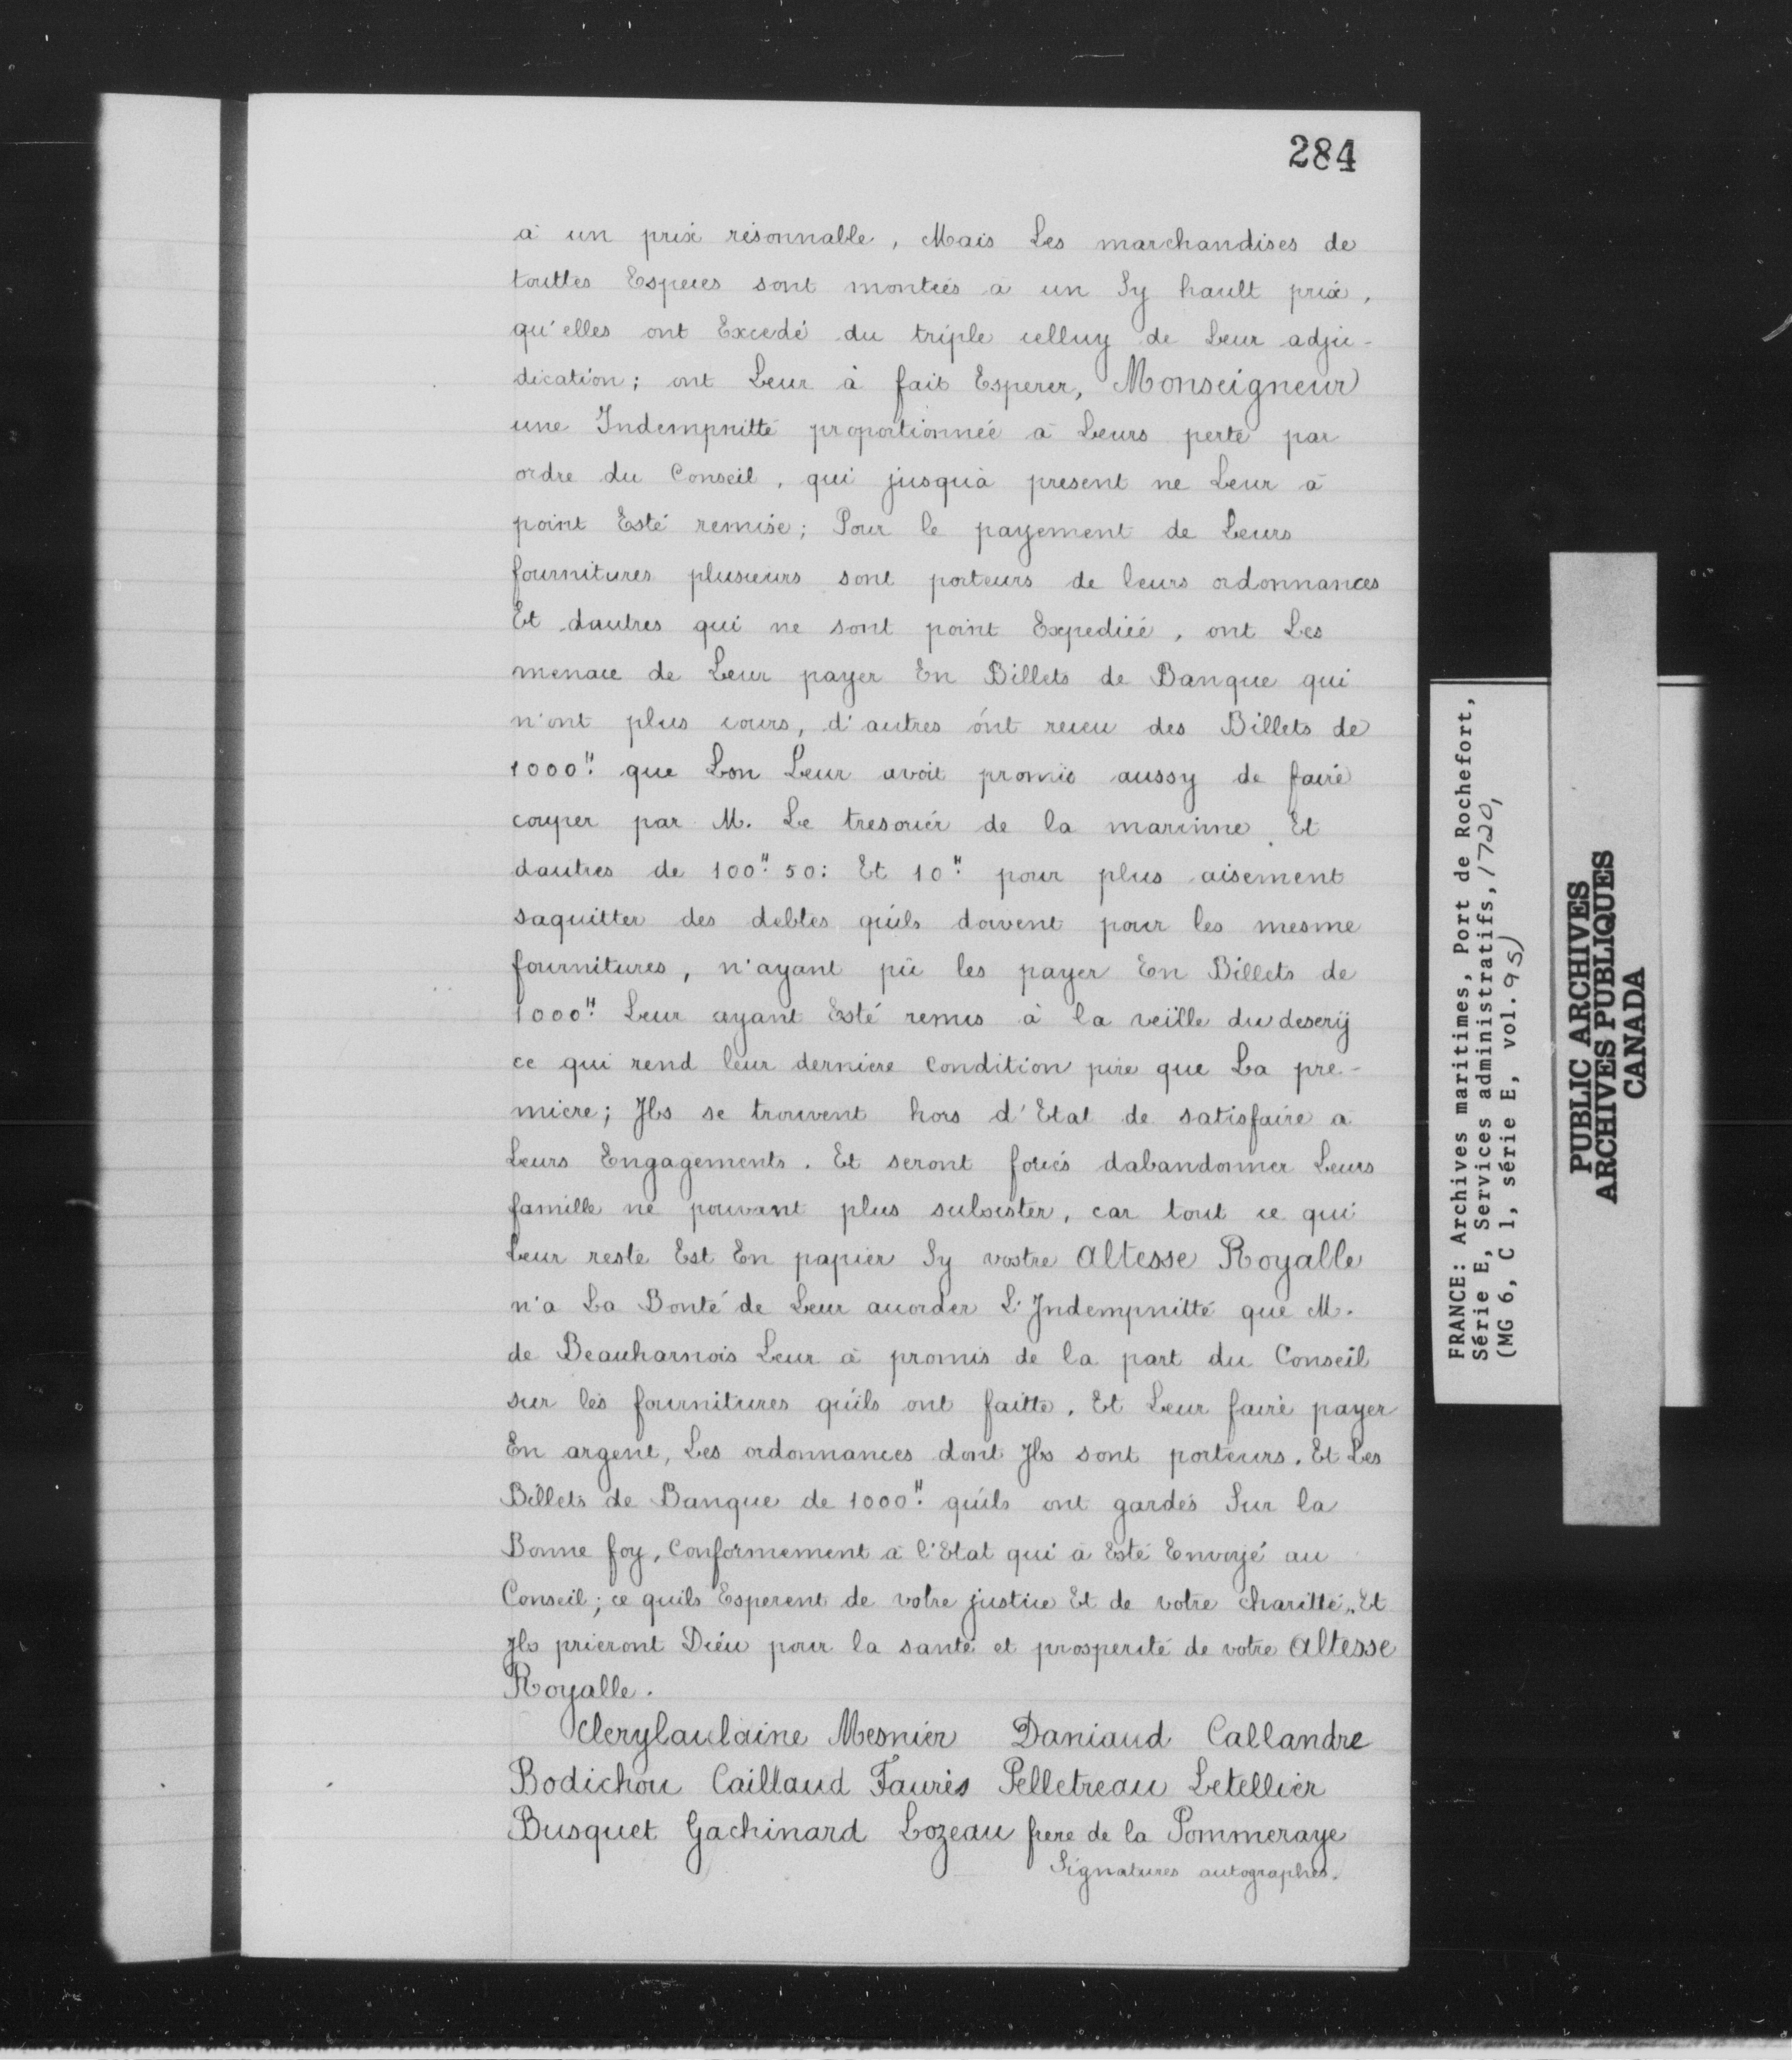 284
à un prix résonnable, Mais Les marchandises de
touttes Especes sont montées à un Sy hault prix,
qu'elles ont Excedé du triple celluy de Leur adju-
dication; ont Leur à fait Esperer, Monseigneur
une Indempnitté proportionnée à Leurs perte par
ordre du Conseil, qui jusqu'à present ne Leur à
point Esté remise; Pour le payement de Leurs
fournitures plusieurs sont porteurs de leurs ordonnances
Et dautres qui ne sont point Expediéé, ont Les
menace de Leur payer En Billets de Banque qui
n'ont plus cours, d'autres ónt receu des Billets de
1000" que Lon Leur avoit promis aussy de faire
couper par M. Le tresorier de la marinne Et
dautres de 100" 50: Et 10" pour plus aisement
saquitter des debtes qu'ils doivent pour les mesme
fournitures, n'ayant pû les payer En Billets de
1000" Leur ayant Esté remis à la veille du descrÿ
ce qui rend leur derniere condition pire que La pre-
miere; Jls se trouvent hors d'Etat de satisfaire a
Leurs Engagements. Et seront forcés dabandonner Leurs
famille ne pouvant plus subsister, car tout ce qui
Leur reste Est En papier Sy vostre Altesse Royalle
n'a La Bonté de Leur accorder L'Jndempnitté que M.
de Beauharnois Leur à promis de la part du Conseil
sur les fournitures qu'ils ont faitte. Et Leur faire payer
En argent, Les ordonnances dont Jls sont porteurs. Et Les
Billets de Banque de 1000" qu'ils ont gardés Sur la
Bonne foy, Conformement à l'Etat qui à Esté Envoyé au
Conseil; ce quils Esperent de votre justice Et de votre charitté,. Et
Jls prieront Diéu pour la santé et prosperité de votre Altesse
Royalle.
Clerylaulaine Mesnier Daniaud Callandre
Bodichon Caillaud Faurès Pelletreau Letellier
Busquet Gachinard Lozeau frere de la Pommeraye
Signatures autographes.
FRANCE: Archives maritimes, Port de Rochefort,
Série E, Services administratifs, 1720,
(MG 6, C 1, série E, vol. 95)
PUBLIC ARCHIVES
ARCHIVES PUBLIQUES
CANADA